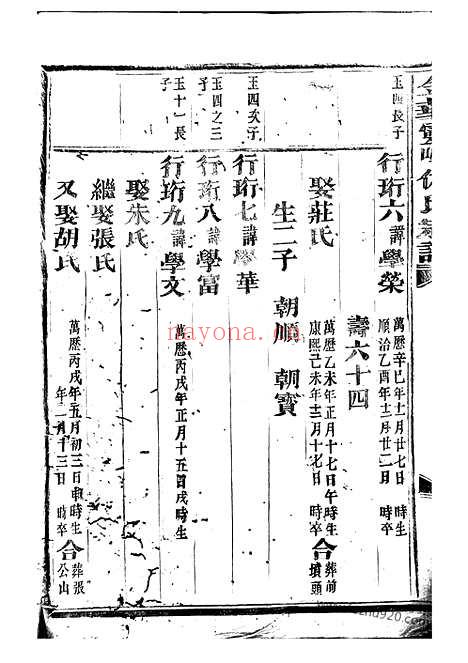 玉四長子
行珩六諱學榮
萬曆辛巳年十二月廿七日 時生
順治乙酉年十二月廿二日 時卒
壽六十四
娶莊氏
萬曆乙未年正月十七日午時生
康熙己未年十二月十七日 時卒
合葬前墳頭
生二子 朝順 朝寳
玉四次子
行珩七諱學華
玉四之三子
行珩八諱學富
玉十一長子
行珩九諱學文
萬曆丙戌年正月十五日戌時生
娶朱氏
繼娶張氏
又娶胡氏
萬曆丙戌年五月初三日申時生
年二月十三日 時卒
合葬張公山
nayona.cn